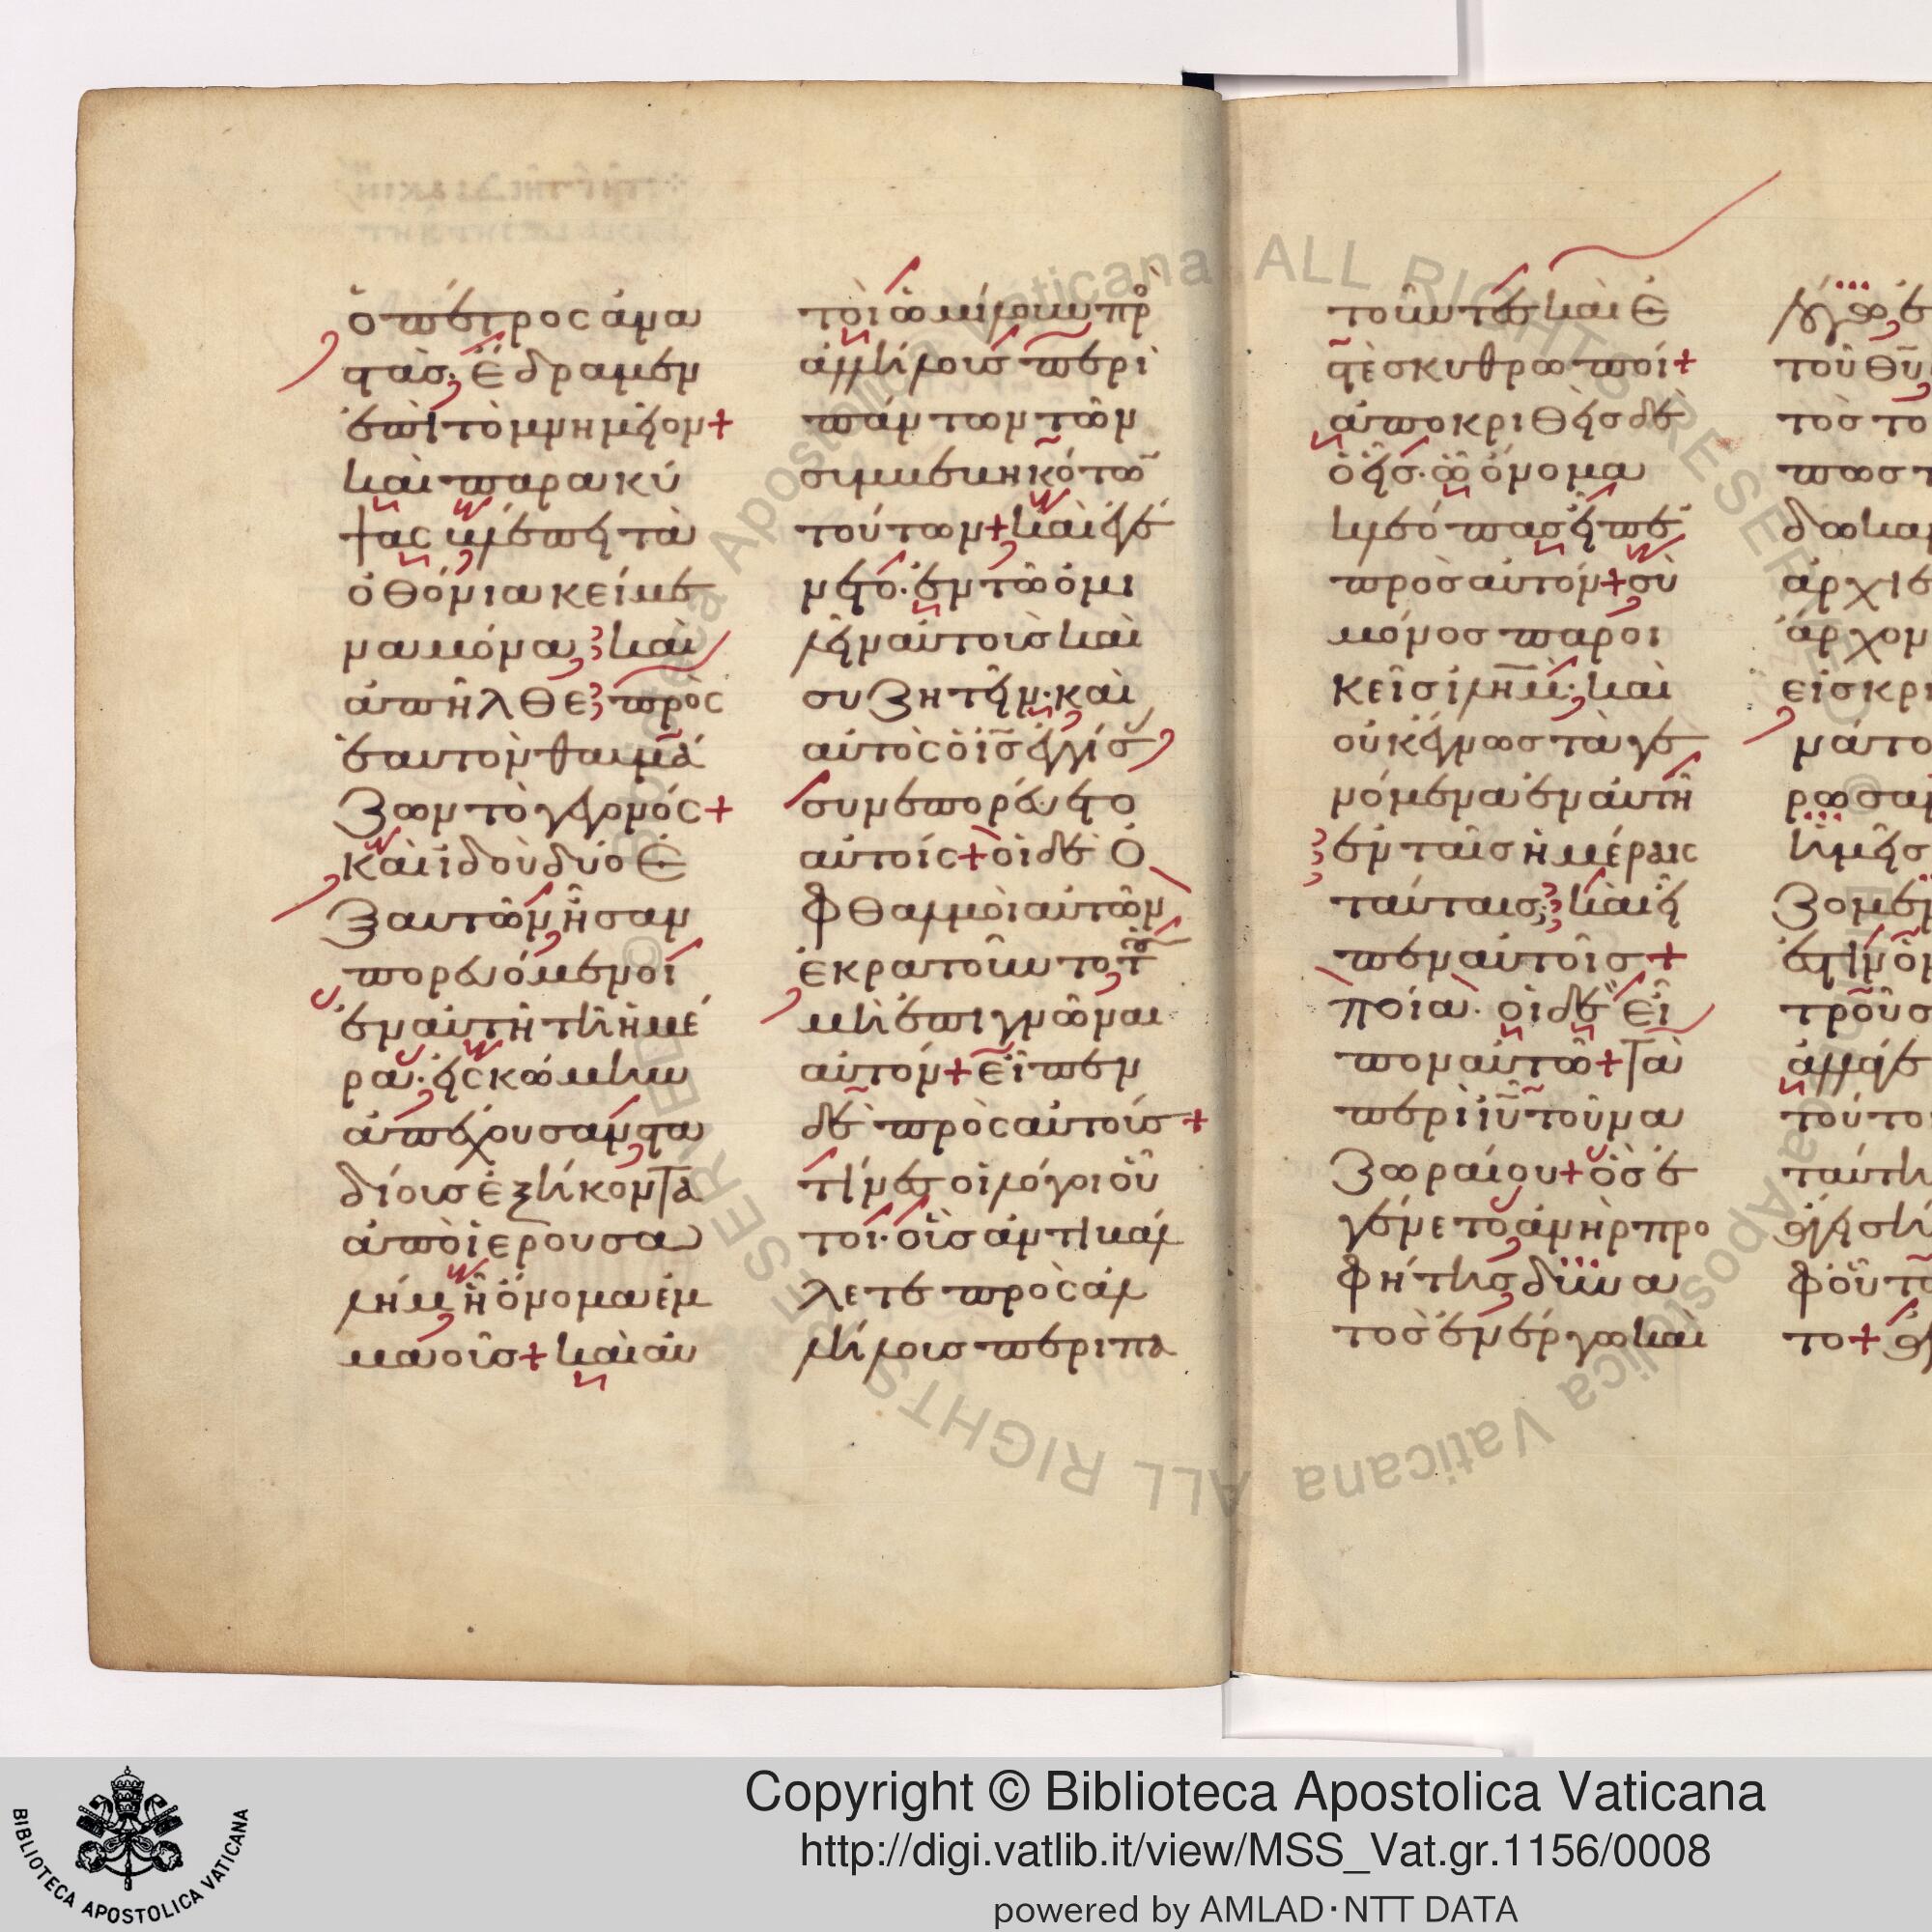 ὁ πέτρος ἀνα
στὰσ· ἔδραμεν
ἐπὶ τὸ μνημεῖον+
καὶ παρακύ
ψας βλέπει τὰ
ὀθόνια κείμε
να μόνα καὶ
ἀπῆλθε πρὸς
ἑαυτὸν θαυμά
ζων τὸ γεγονός+
καὶ ἰδοὺ δύο ἐ
ξ αυτῶν ἦσαν
πορευόμενοι
ἐν αὐτῆ τῆ ἡμέ
ρα· εἰς κώμην
ἀπέχουσαν στα
δίους ἑξήκοντα
ἀπὸ ἱερουσα
λήμ ἧ ὄνομα ἐμ
μαοῦσ+ καὶ αὐ
τοὶ ὡμίλουν πρ
ἀλλήλους περὶ
πάντων τῶν
συμβεβηκότω
τούτων+ καὶ ἐγέ
νετο· ἐν τῶ ὁμι
λεῖν αὐτοὺς καὶ
συζητεῖν· καὶ
αὐτὸς ὁ ισ ἐγγίσ
συνεπορεύετο
αὐτοίς+ οἱ δὲ ὀ
φθαλμοὶ αὐτῶν
ἐκρατοῦντο τ
μὴ ἐπιγνῶναι
αὐτόν+ εἶπεν
δὲ πρὸς αὐτούσ+
τίνες οἱ λόγοι οὗ
τοι· οὓσ ἀντιβάλ
λετε πρὸς ἀλ
λήλους περιπα
τοῦντες καὶ ἐ
στὲ σκυθρωποί+
ἀποκριθεὶς δὲ
ὁ εἷσ· ὧ ὄνομα
κλεόπας εἶπε
πρὸς αὐτόν+ σὺ
μόνος παροι
κεῖσ ιλημ· καὶ
οὐκ ἔγνωσ τὰ γε
νόμενα ἐν αὐτῆ
ἐν ταῖς ἡμέραις
ταύταις; καὶ εἶ
πεν αὐτοῖσ+
ποία· οἱ δὲ εἶ
πον αὐτῶ+ Τὰ
περὶ ιυ τοῦ να
ζωραίου+ ὃς ἐ
γένετο ἀνὴρ προ
φήτης δυνα
τὸς ἐν ἔργω καὶ
λόγω ἐ
τοῦ θυ
τὸς το
πως τ
δωκαν
ἀρχιε
ἄρχον
εἰς κρί
μα θανάτο
ρωσαν
ἡμεῖς
ζομεν
ἐστιν ὁ
τροῦσ
ἀλλάγε
τούτο
ταύτη
φοῦ το
το+
Copyright © Biblioteca Apostolica Vaticana
http://digi.vatlib.it/view/MSS_Vat.gr.1156/0008
powered by AMLAD·NTT DATA
BIBLIOTECA APOSTOLICA VATICANA